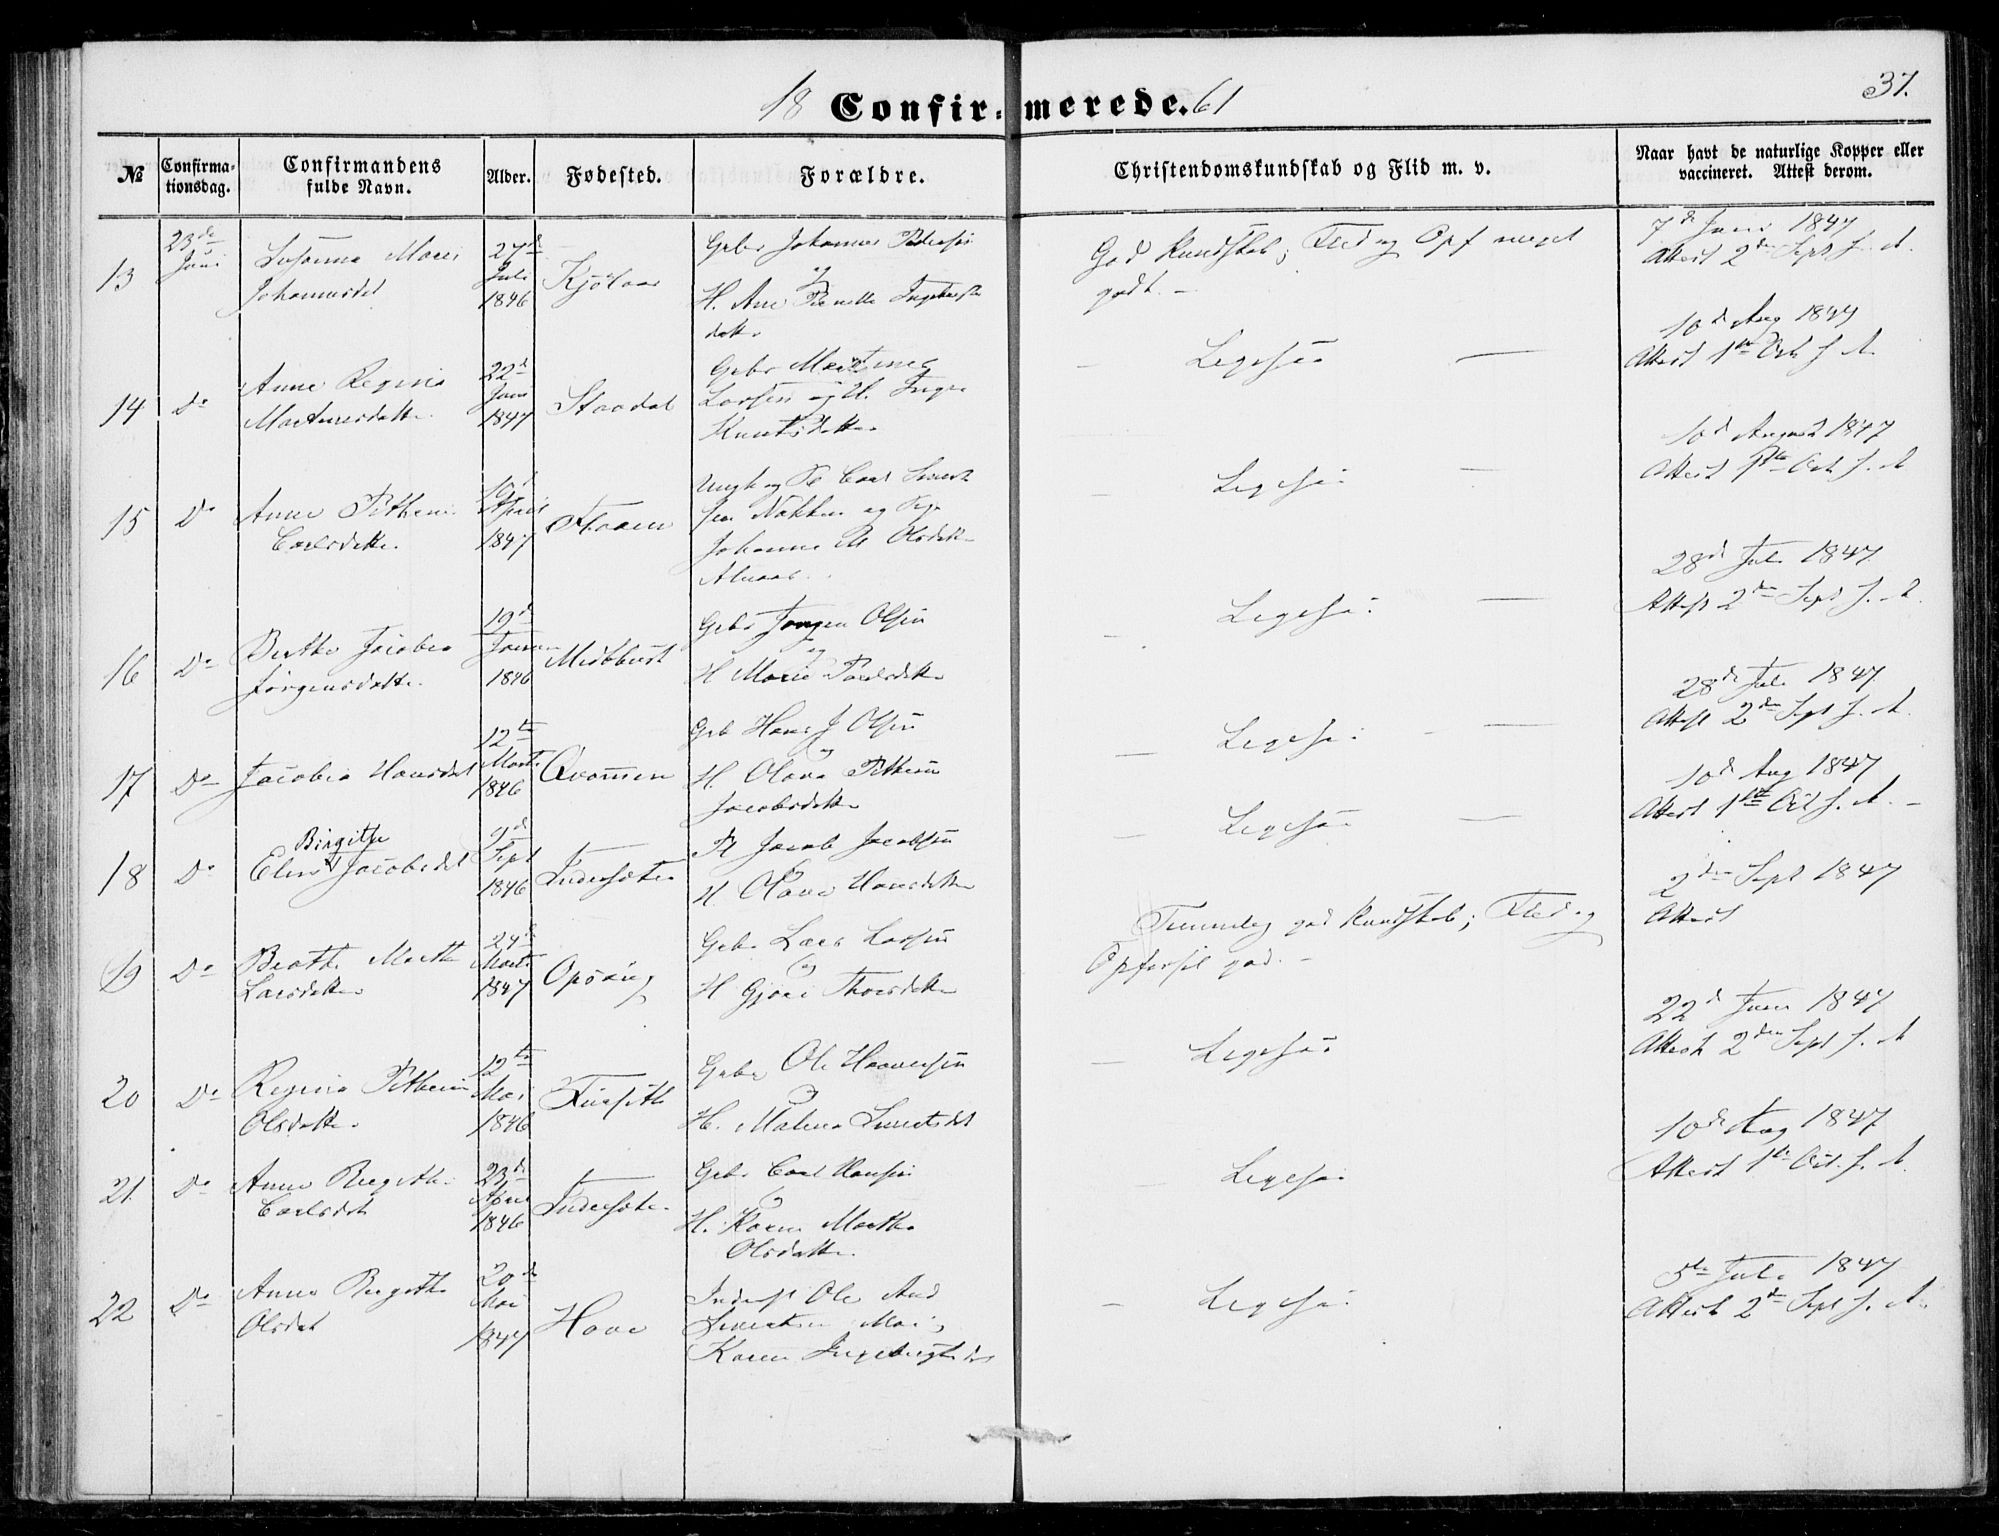 18 Confirmerede. 61
37.
№ Confirmationsdag. Confirmandens fulde Navn. Alder. Fødested. Forældre. Christendomskundskab og Flid m. v. Naar havt de naturlige Kopper eller vaccineret. Attest derom.
13 23de Juni Susanna Marie Johannesdat 27d Juli 1846 Gbr Johannes Pedersen
og
H. Ane Pernille
datte
God Kundskab; Flid og Opf meget godt. –
7d Juni 1847
Attest 2den Sept s. A.
14 Do Anne Regine Martinusdatte 22d Juni 1847 Staadal Gbr Martinus
Larsen og H. Inger
Knutsdatte
Ligesaa
10d Aug 1847
Attest 1ste Oct s. A.
15 Do Anne Pethrine Carlsdatte. April 1847 Floeen Ungk og Carl
sen Nakken og Pige
Johanne M Olsdatte
Ligesaa
10d August 1847
Attest 1ste Oct s. A
16 Do Berthe Jacobea Jörgensdatte 19d Januar 1846 Midbbust Gbr Jørgen Olsen
og
H Marie
Ligesaa
28d Juli 1847
Attest 2den Sept s. A.
17 Do Jacobea Hansdat 12te Marts 1846 Qvammen Gbr Hans J Olsen
og
H. Olava Pethrine
Jacobsdatte
Ligesaa
28d Juli 1847
Attest 2den Sept s. A.
18 Do Elen Birgithe Jacobsdat Sept 1846 Indresæter Jacob Jacobsen
og
H. Olave Hansdatte
Ligesaa
10d Aug 1847
Attest 1ste Oct s. A. –
19 Do Berthe Marthe Larsdatte 24d Marts 1847 Opsang Gbr Lars Larsen
og
H Gjore Thorsdatte
Temmelig god Kundskab; Flid og
Opførsel god. –
2den Sept 1847
Attest
20 Do Regine Pethrine Olsdatte 12te Mai 1846 Gbr Ole
og
H. Malene Sivertsdat
Ligesaa
22d Juni 1847
Attest 2den Sept s. A
21 Do Anne Birgithe Carlsdat 23d April 1846 Indresæter Gbr Carl Hansen
og
H. Karen Marthe
Olsdatte.
Ligesaa
10d Aug 1847
Attest 1ste Oct. s. A.
22 Do Anne Birgithe Olsdat 20d Mai 1847 Hove Inderst Ole And
Sivertsen
Karen Ingebrigtsdat
Ligesaa
5te Juli 1847
Attest 2den Sept s. A.